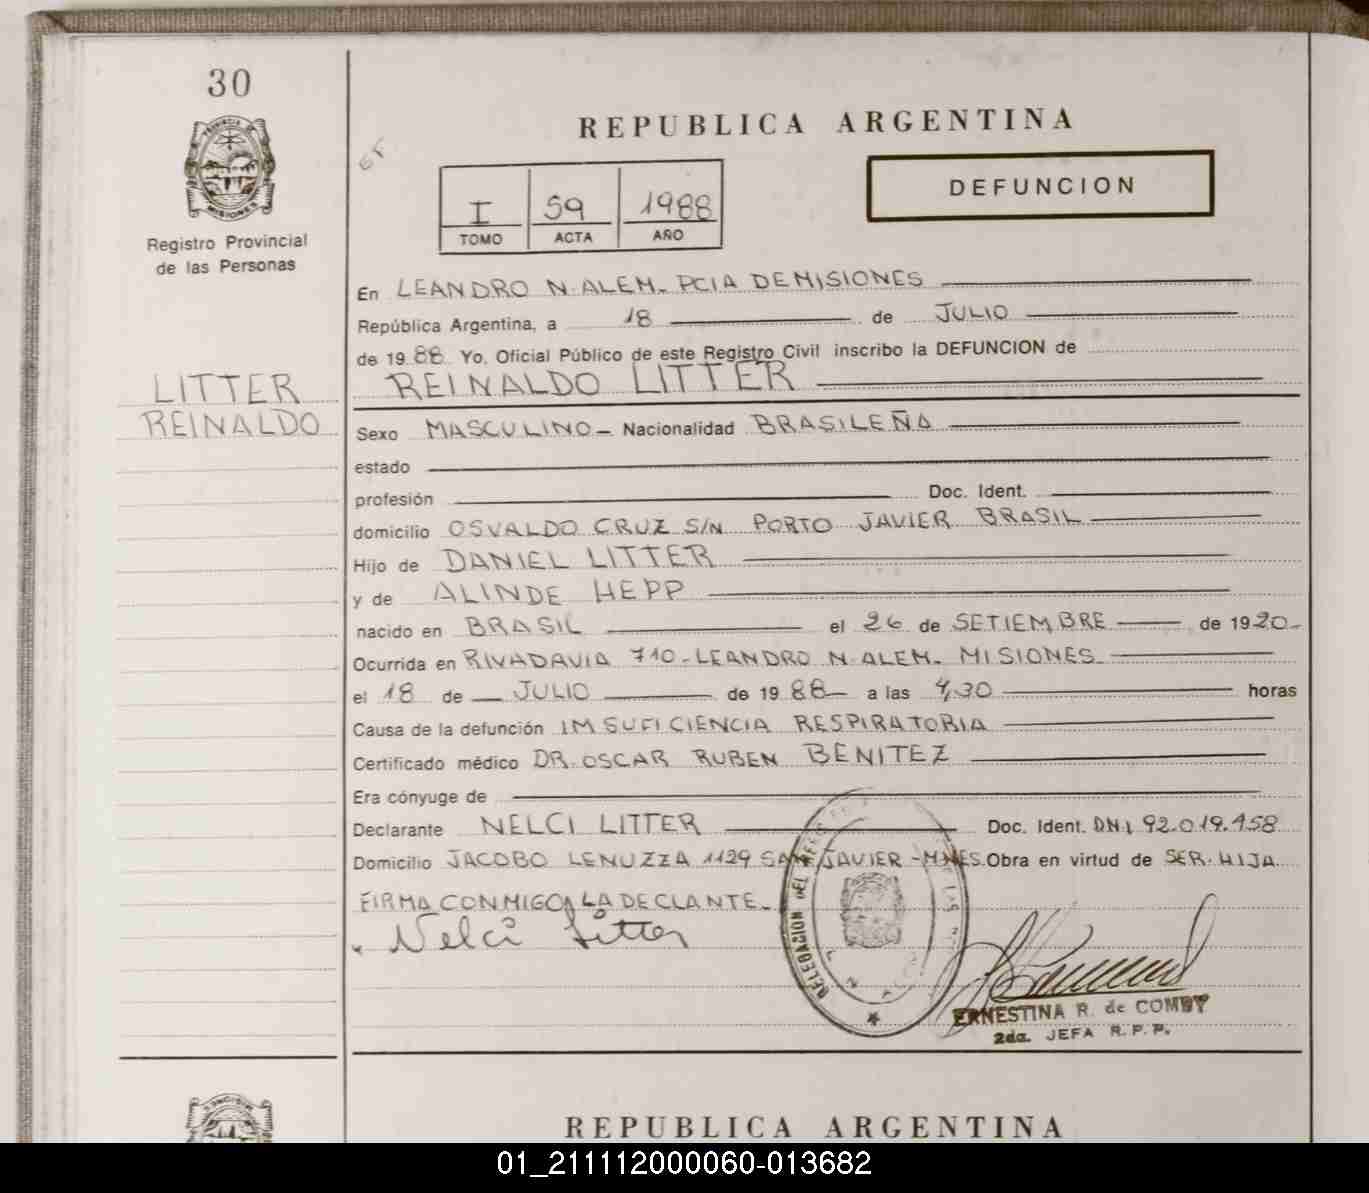 30
PROVINCIA DE
MISIONES
Registro Provincial
de las Personas
REPUBLICA ARGENTINA
DEFUNCION
I 59 1988
TOMO ACTA AÑO
En LEANDRO N. ALEM. PCIA DE MISIONES
República Argentina, a 18 de JULIO
de 1988. Yo, Oficial Público de este Registro Civil inscribo la DEFUNCION de
REINALDO LITTER
LITTER
REINALDO
Sexo MASCULINO - Nacionalidad BRASILEÑA
estado
profesión Doc. Ident.
domicilio OSVALDO CRUZ S/N PORTO JAVIER BRASIL
Hijo de DANIEL LITTER
y de ALINDE HEPP
nacido en BRASIL el 26 de SETIEMBRE de 1920-
Ocurrida en RIVADAVIA 710-LEANDRO N. ALEM. MISIONES
el 18 de JULIO de 1988 a las 4,30 horas
Causa de la defunción IMSUFICIENCIA RESPIRATORIA
Certificado médico DR. OSCAR RUBEN BENITEZ
Era cónyuge de
Declarante NELCI LITTER Doc. Ident. DNI 92.019.458
Domicilio JACOBO LENUZZA 1129 SAN JAVIER - MNES. Obra en virtud de SER. HIJA
FIRMA CONMIGO LA DECLANTE.
Nelci Litter
DELEGACION DEL
ERNESTINA R. de COMBY
2da. JEFA R. P. P.
REPUBLICA ARGENTINA
01_211112000060-013682